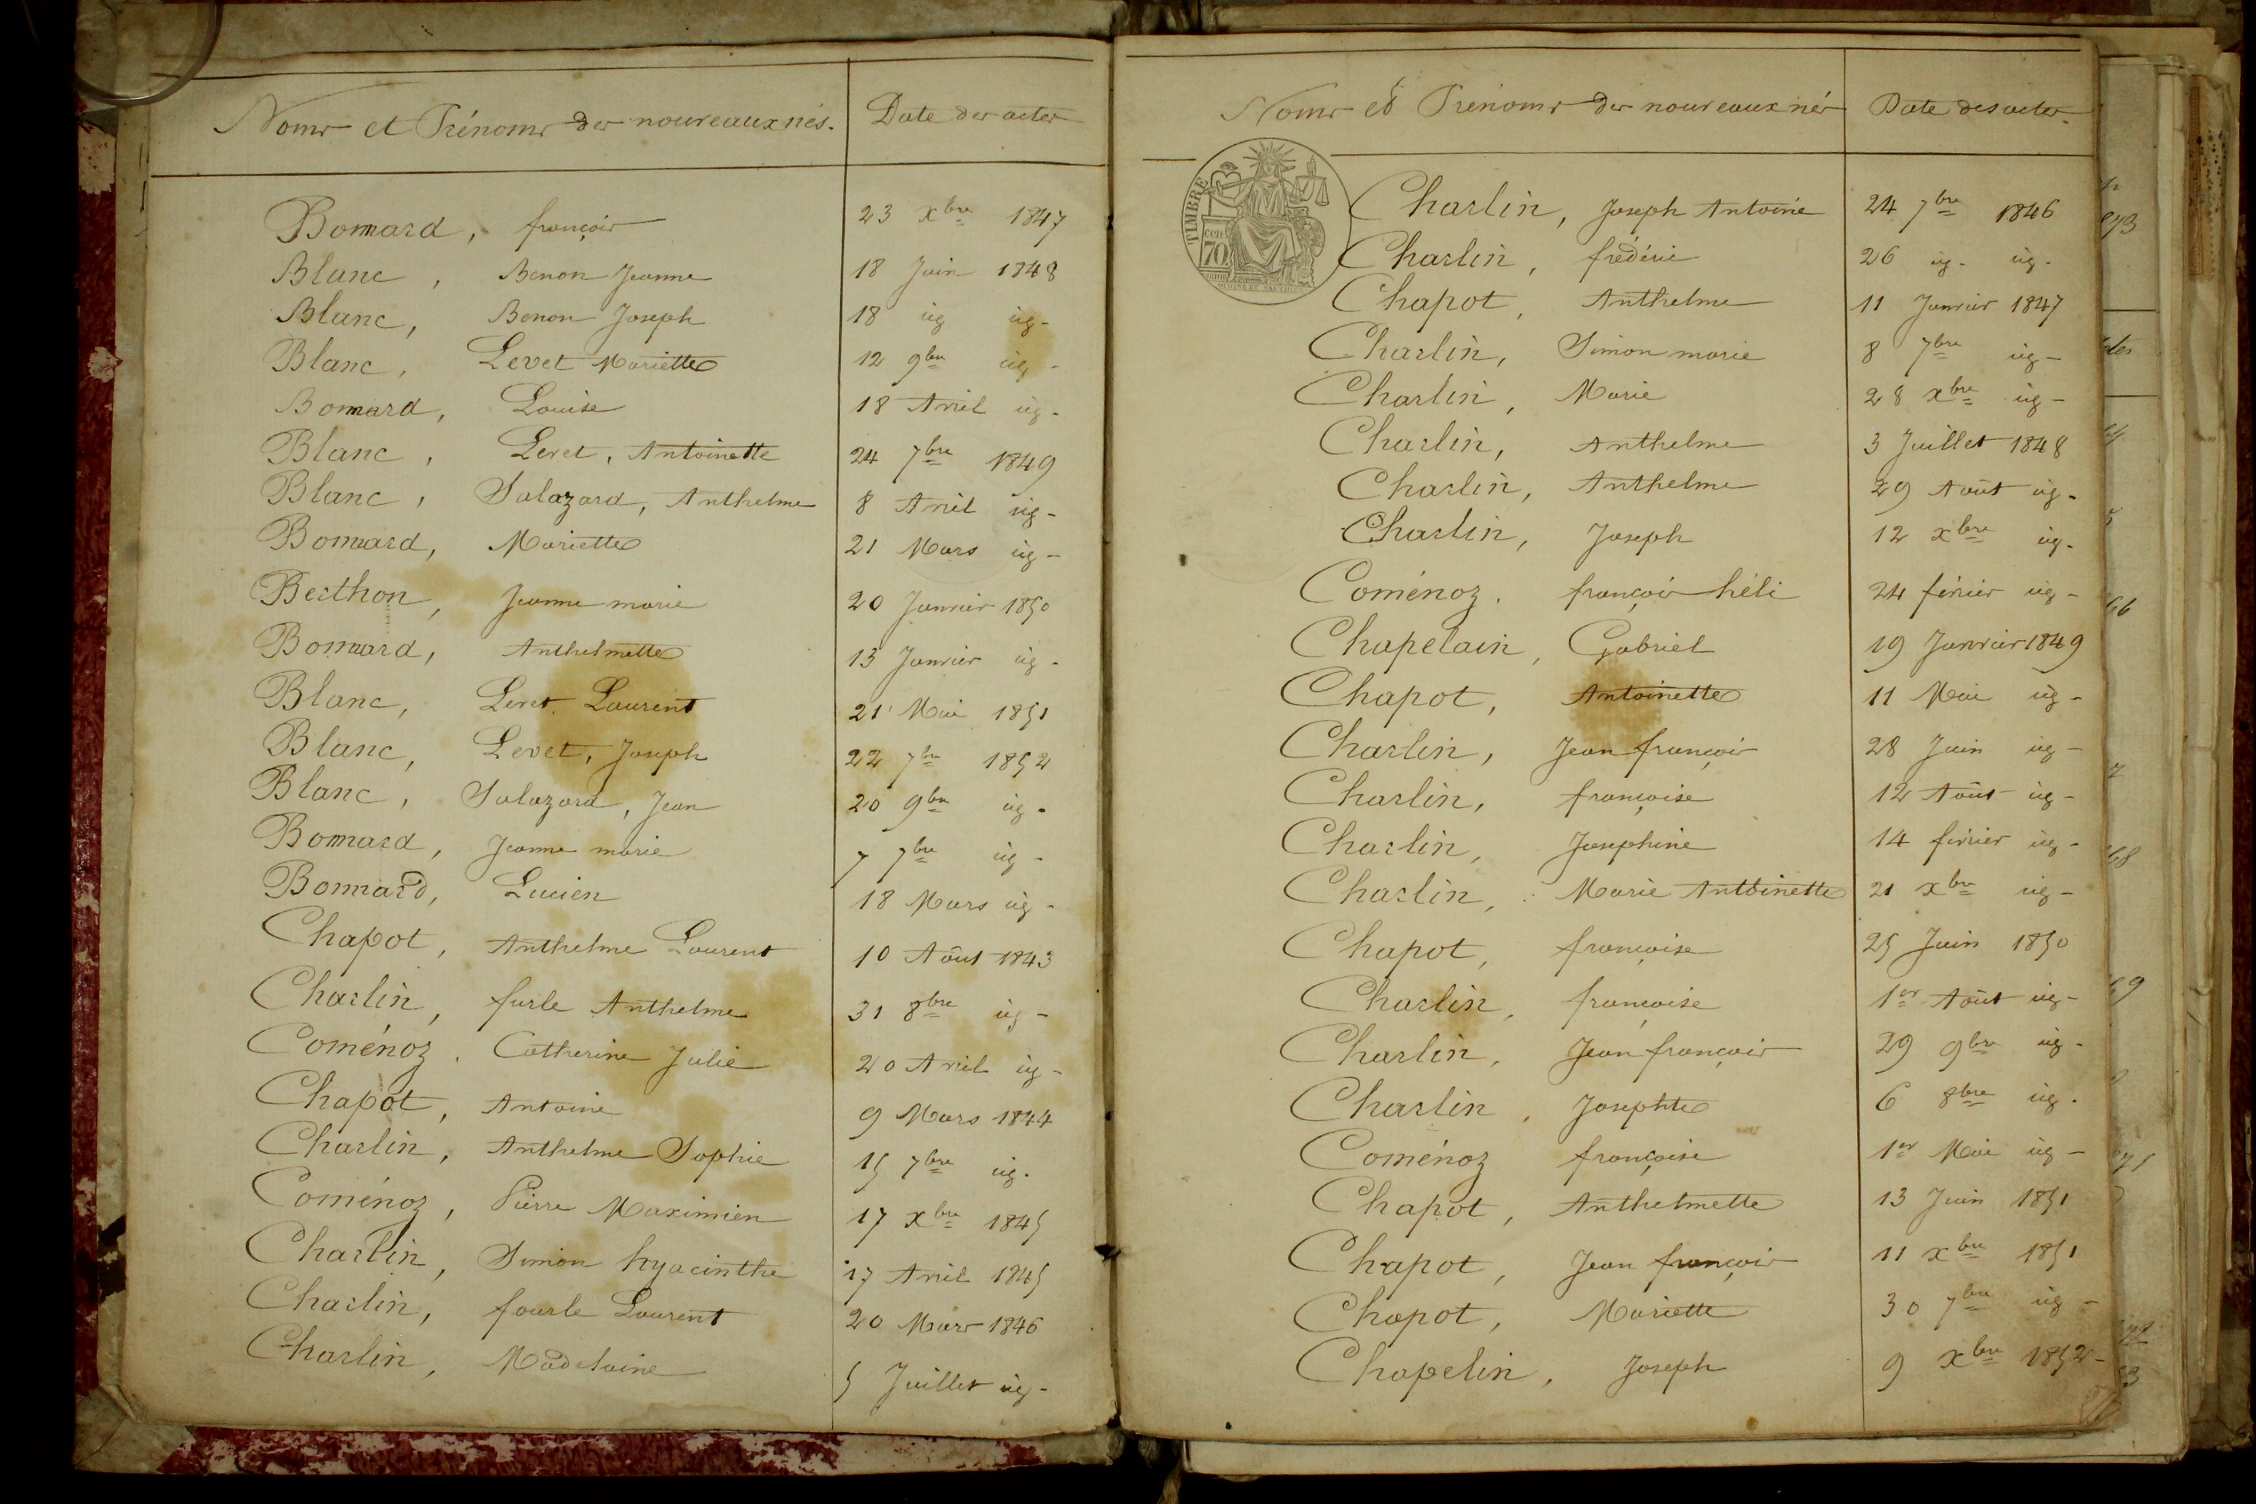 Noms et Prénoms des nouveaux nés. Date des actes
Bonnard, françois 23 xbre 1847
Blanc, Benon Jeanne 18 Juin 1848
Blanc, Benon Joseph 18 id id -
Blanc, Levet Mariette 12 9bre id -
Bonnard, Louise 18 Avril id -
Blanc, Levet, Antoinette 24 7bre 1849
Blanc, Salazard, Anthelme 8 Avril id -
Bonnard, Mariette 21 Mars id -
Berthon, Jeanne marie 20 Janvier 1850
Bonnard, Anthelmette 13 Janvier id -
Blanc, Levet Laurent 21 Mai 1851
Blanc, Levet, Joseph 22 7bre 1852
Blanc, Salazard, Jean 20 9bre id -
Bonnard, Jeanne marie 7 7bre id -
Bonnard, Lucien 18 Mars id -
Chapot, Anthelme Laurent 10 Août 1843
Charlin, furle Anthelme 31 8bre id -
Coménoz. Catherine Julie 20 Avril id -
Chapot, Antoine 9 Mars 1844
Charlin, Anthelme Sophie 15 7bre id -
Coménoz, Pierre Maximien 17 xbre 1845
Charlin, Simon hyacinthe 17 Avril 1845
Charlin, fourle Laurent 20 Mars 1846
Charlin, Madelaine 5 Juillet id -
Noms et Prénoms des nouveaux nés Date des actes.
TIMBRE
70
Charlin, Joseph Antoine 24 7bre 1846
Charlin, frédéric 26 id - id -
Chapot, Anthelme 11 Janvier 1847
Charlin, Simon marie 8 7bre id -
Charlin, Marie 28 xbre id -
Charlin, Anthelme 3 Juillet 1848
Charlin, Anthelme 29 Août id -
Charlin, Joseph 12 xbre id -
Coménoz. françois héli 24 févier id -
Chapelain, Gabriel 19 Janvier 1849
Chapot, Antoinette 11 Mai id -
Charlin, Jean françois 28 Juin id -
Charlin, françoise 12 Août id -
Charlin, Josephine 14 févier id -
Charlin, Marie Antoinette 21 xbre id -
Chapot, françoise 25 Juin 1850
Charlin, françoise 1er Août id -
Charlin, Jean françois 29 9bre id -
Charlin, Josephte 6 8bre id -
Coménoz françoise 1er Mai id -
Chapot, Anthelmette 13 Juin 1851
Chapot, Jean françois 11 xbre 1851
Chapot, Mariette 30 7bre id -
Chapelin, Joseph 9 xbre 1852 -